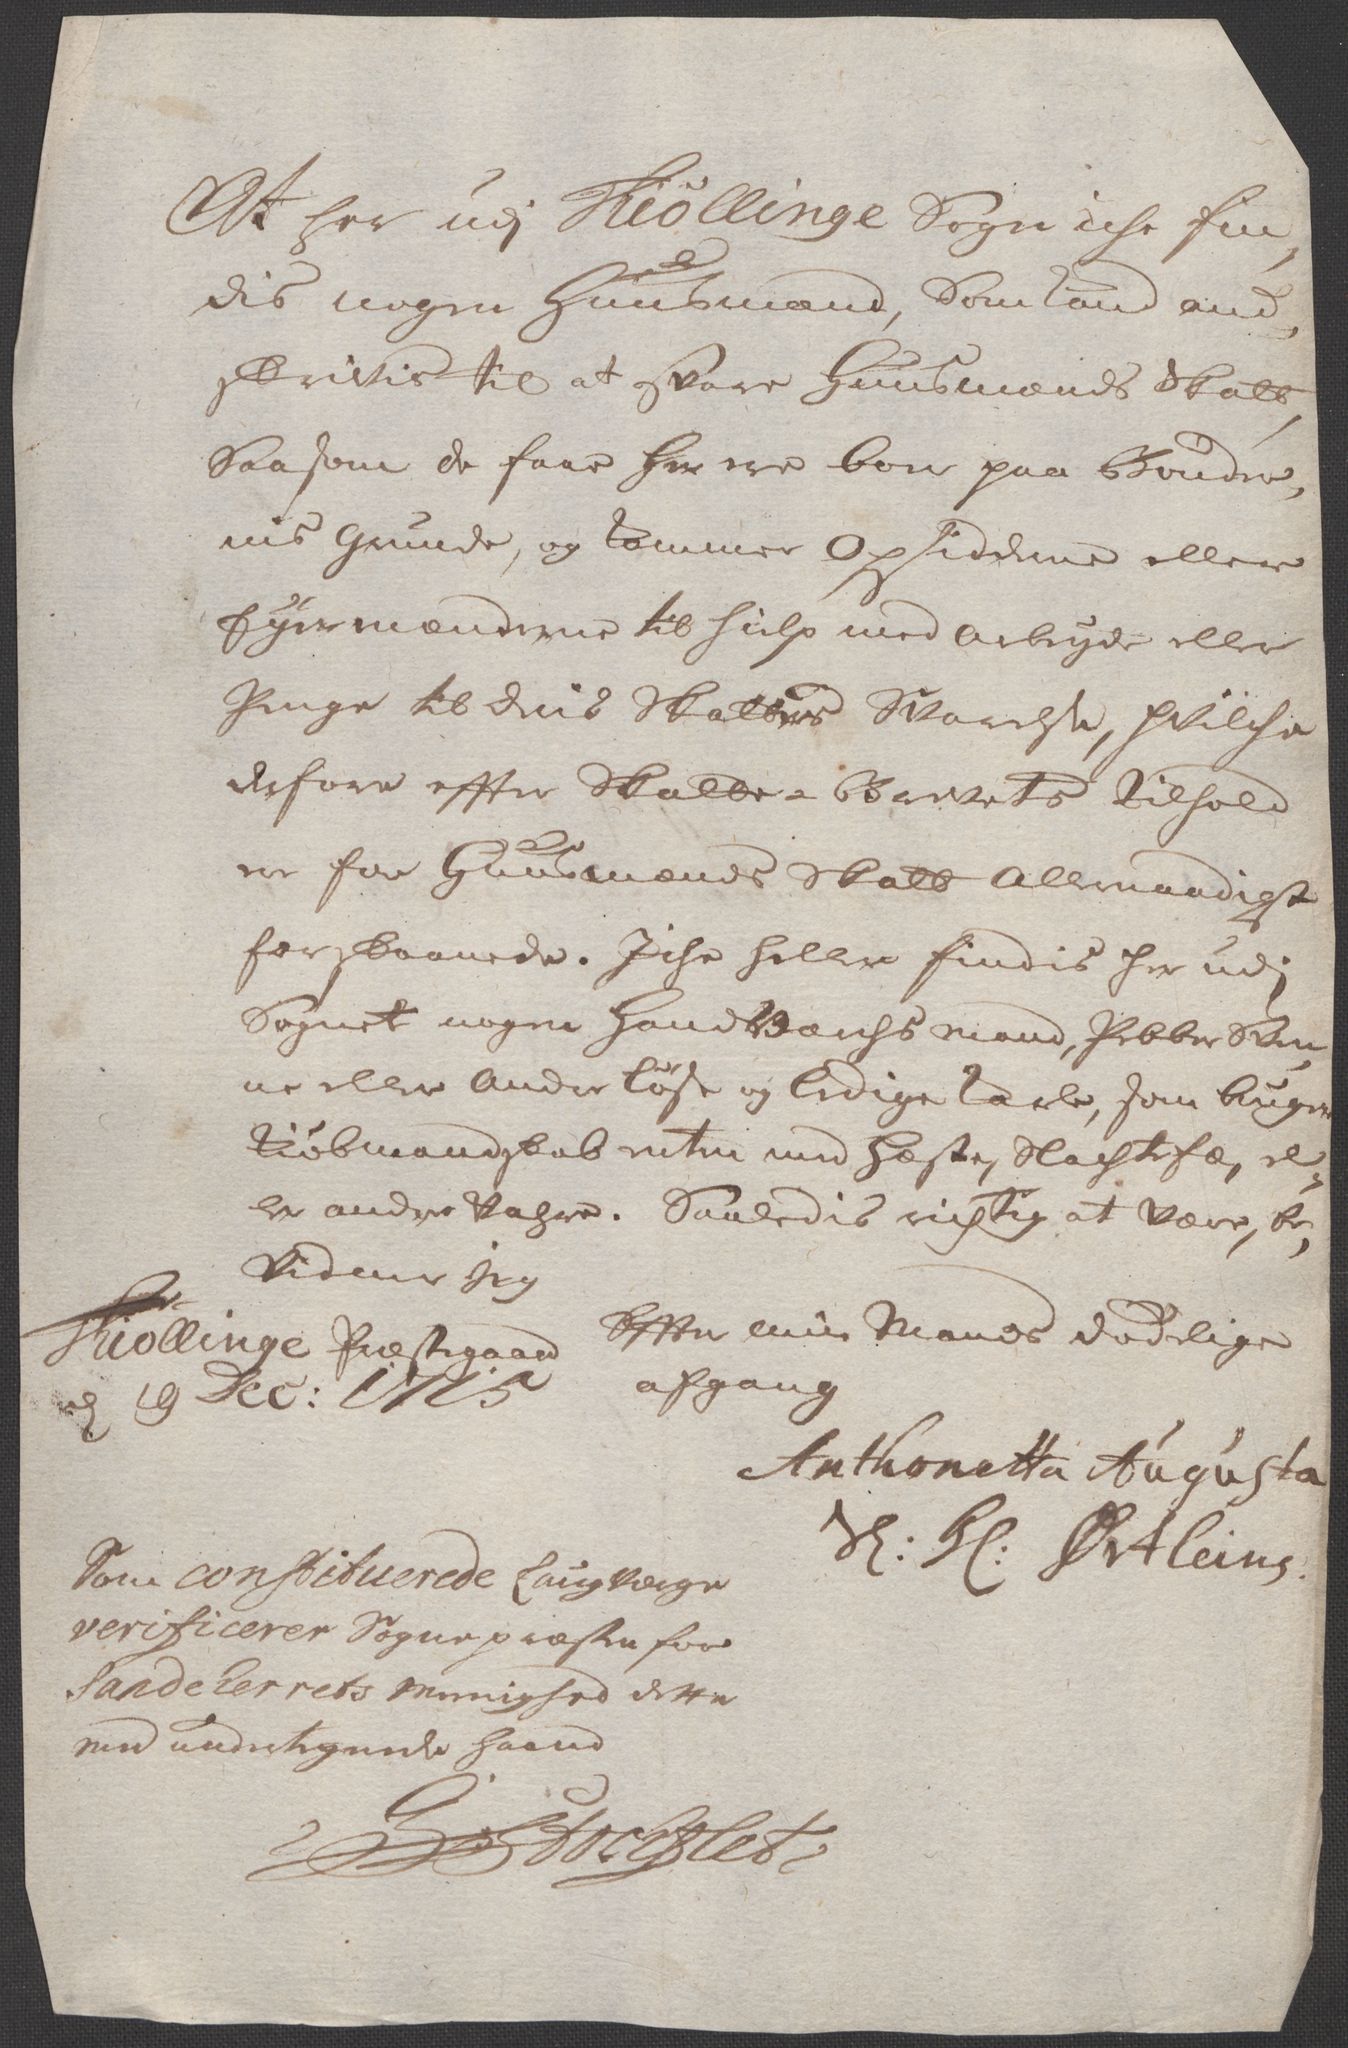 At her udj Kiöllinge Sogn iche fin,
dis nogen Huusmænd, Som kand and,
skrivis til at svare Huusmænds Skatt,
Saasom de faae her ere boer paa Bönder,
nis Grunde, og kommer Opsidderne eller
Fyermænderne til hielp med Arbeyde eller
Penge til deris Skatters Svarelse, hvilche
derfore effter Skatte-Brevets Tilhold
er for Huusmænds Skatt Allernaadigst
forskaanede. Iche heller findis her udj
Sognet nogen Handværchs mand, Pebber Sven,
ne eller Andre löse og ledige karle, som bruger
Kiöbmandskab enten med Heste, Slachtefæ, el,
ler andre Vahre. Saaledis rigtig at være, be,
vidner jeg
Kiöllinge Præstegaard
d 19 Dec: 1715
Effter min Mands dödelige
afgang
Anthonetta Augusta
Sl: Hl: Ørtleins
Som constituerede Laugværge
verificerer Sognepræsten for
Sandeherrets Menighed dette
med underteignede haand
Stochflet